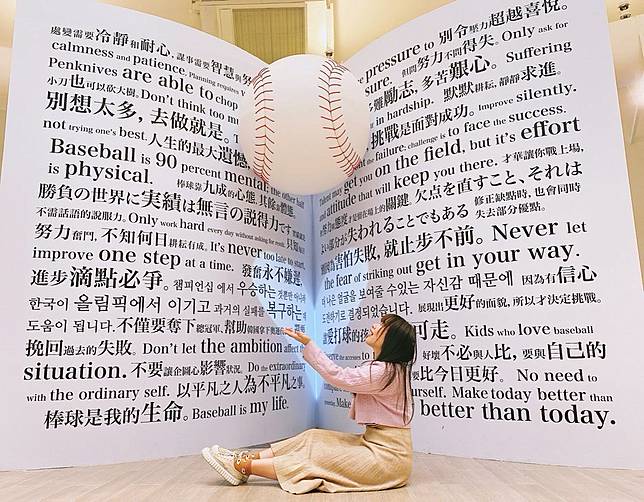 處變需要冷靜和耐心，謀事需要智慧與努
calmness and patience. Planning requires
Penknives are able to chop
小刀也可以砍大樹。Don't think too
別想太多，去做就是。
not trying one's best. 人生的最大遺憾
Baseball is 90 percent mental; the other half
is physical. 棒球靠九成的心態，其餘
勝負の世界に実績は無言の説得力です
不需話語的說服力。Only work hard every day without asking for
努力奮鬥，不知何日耕耘有成。It's never too late to start,
improve one step at a time. 發奮永不嫌遲，
進步滴點必爭。챔피언십 에서 우승하는
한국이 올림픽에서 이기고 과거의 실패를 복구하는
도움이 됩니다. 不僅要奪下總冠軍，幫助
挽回過去的失敗。Don't let the ambition affect the
situation. 不要讓企圖心影響狀況。Do the extraordinary
with the ordinary self. 以平凡之人為不平凡之事。
棒球是我的生命。Baseball is my life.
pressure to 別令壓力超越喜悅。
但問努力不問得失。Only ask for
勵志，多苦艱心。Suffering
in hardship. 默默耕耘，靜靜求進。
挑戰是面對成功。Improve silently.
the failure, challenge is to face the success.
get you on the field, but it's effort
and attitude that will keep you there. 才華讓你戰上場，
關鍵。欠点を直すこと、それは
よい部分が失われることでもある 修正缺點時，也會同時
失去部分優點。
因為害怕失敗，就止步不前。Never let
the fear of striking out get in your way.
더 나은 얼굴을 보여줄 수있는 자신감 때문에 因為有信心
결정되었습니다. 展現出更好的面貌，所以才決定挑戰。
讓愛打球的孩 可走。Kids who love baseball
好壞不必與人比，要與自己的
比今日更好。No need to
yourself. Make today better than
better than today.